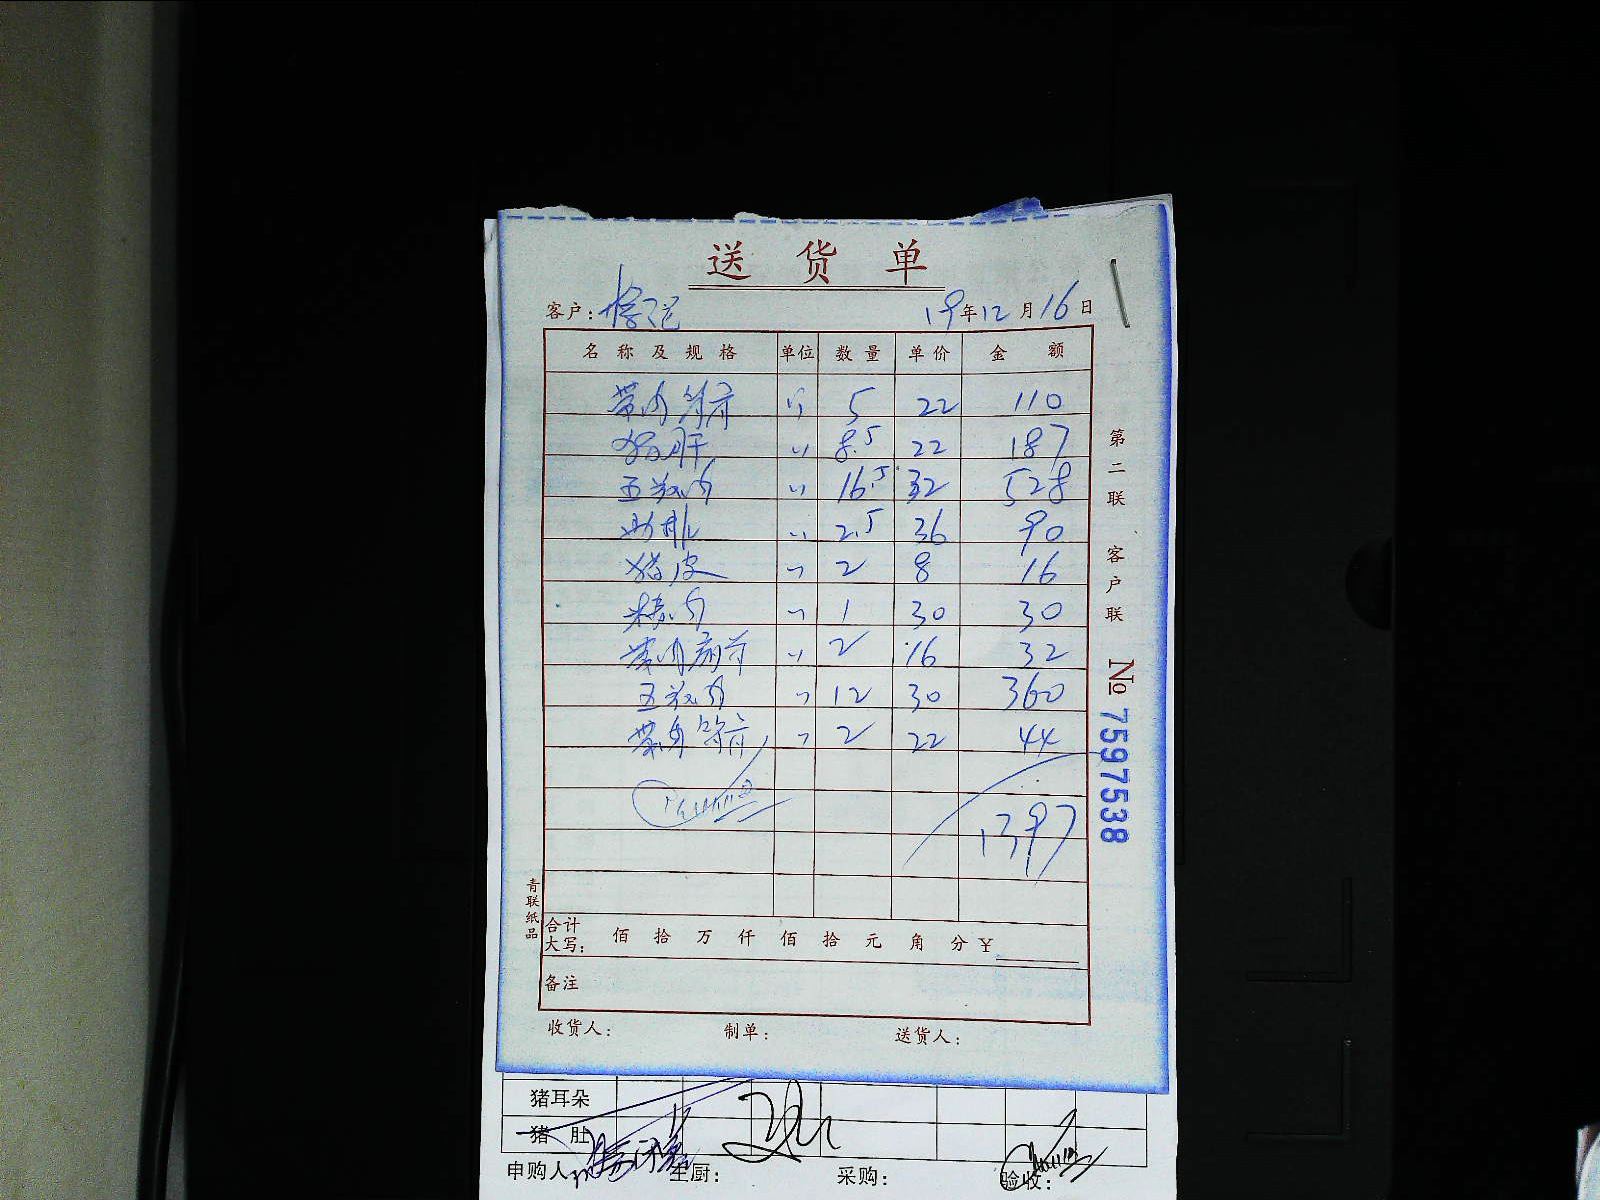 送货单
客户: 19年12月16日
名称及规格 单位 数量 单价 金额
带肉筒骨 〃 5 22 110
猪肝 〃 8.5 22 187
五花肉 〃 16.5 32 528
肋排 〃 2.5 36 90
猪皮 〃 2 8 16
精肉 〃 1 30 30
带肉扇骨 〃 2 16 32
五花肉 〃 12 30 360
带肉筒骨 〃 2 22 44
1397
合计大写: 佰 拾 万 仟 佰 拾 元 角 分 ¥
备注
收货人: 制单: 送货人:
第二联 客户联
No 7597538
青联纸品
猪耳朵
猪肚
申购人 主厨: 采购: 验收: